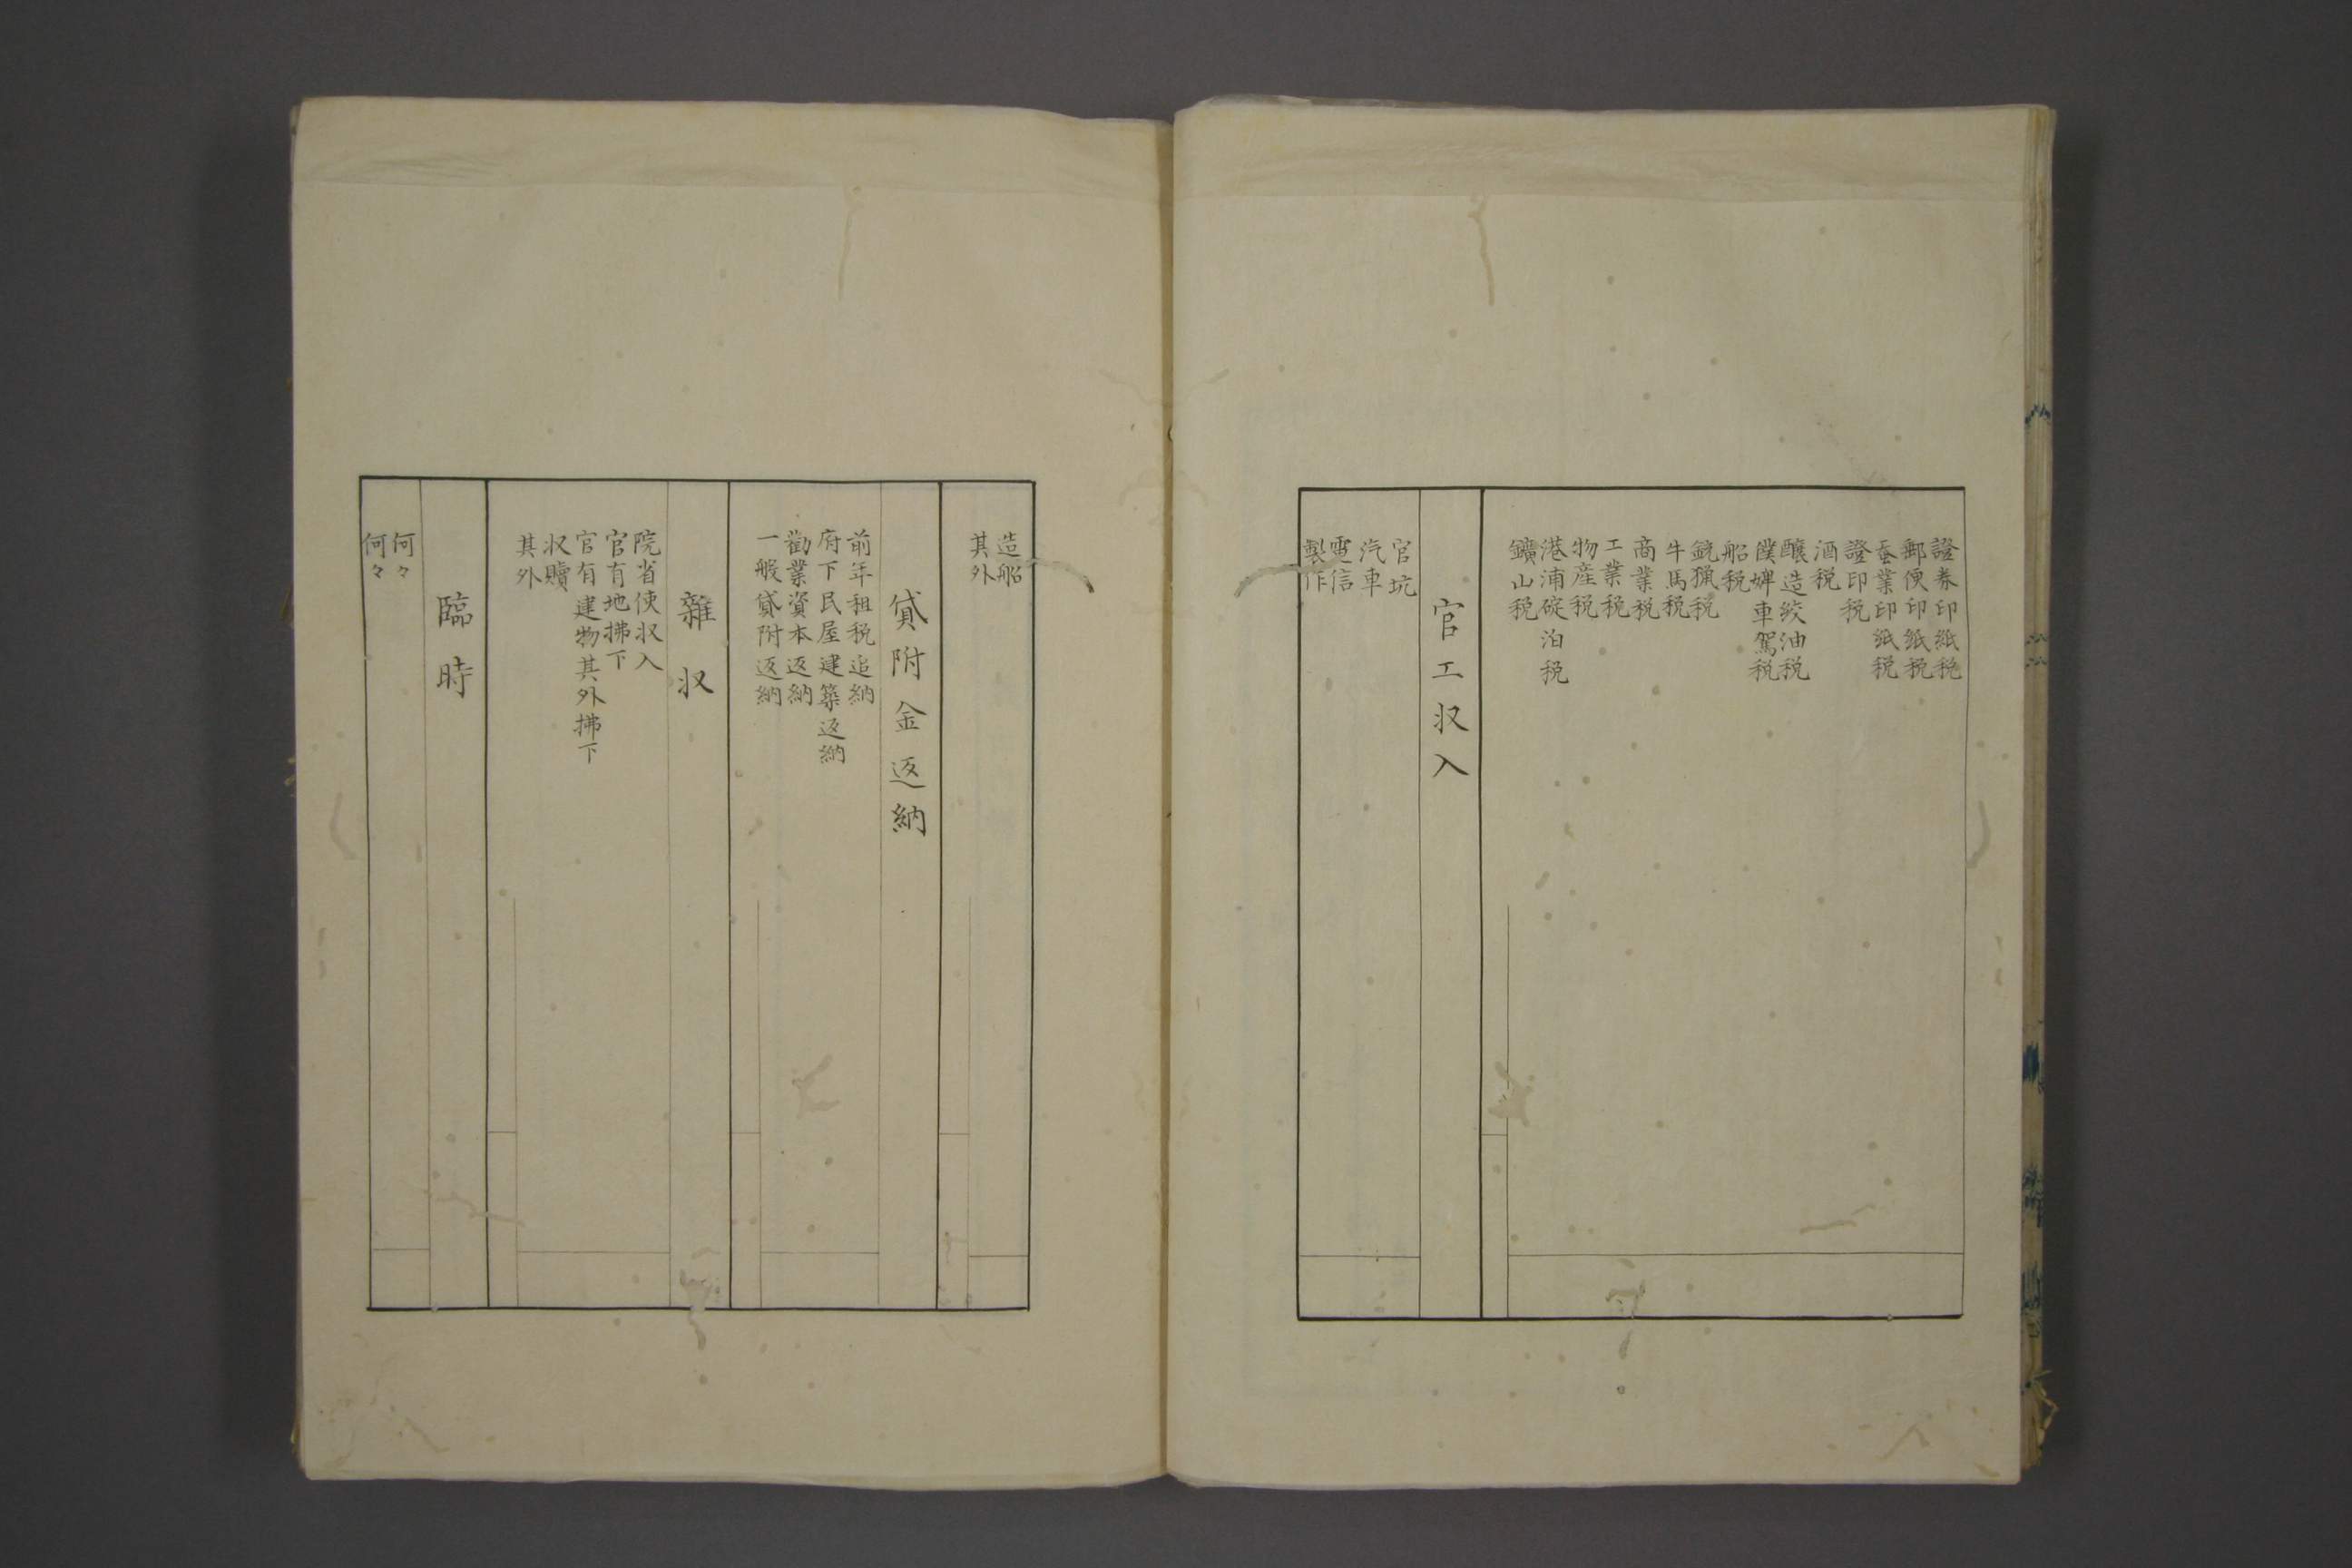 證券印紙税
郵便印紙税
蚕業印紙税
證印税
酒税
醸造絞油税
僕婢車駕税
船税
銃猟税
牛馬税
商業税
工業税
物産税
港浦碇泊税
鑛山税
官工収入
官坑
汽車
電信
製作
造船
其外
貸附金返納
前年租税追納
府下民屋建築返納
勧業資本返納
一般貸附返納
雑収
院省使収入
官有地拂下
官有建物其外拂下
収贖
其外
臨時
何々
何々